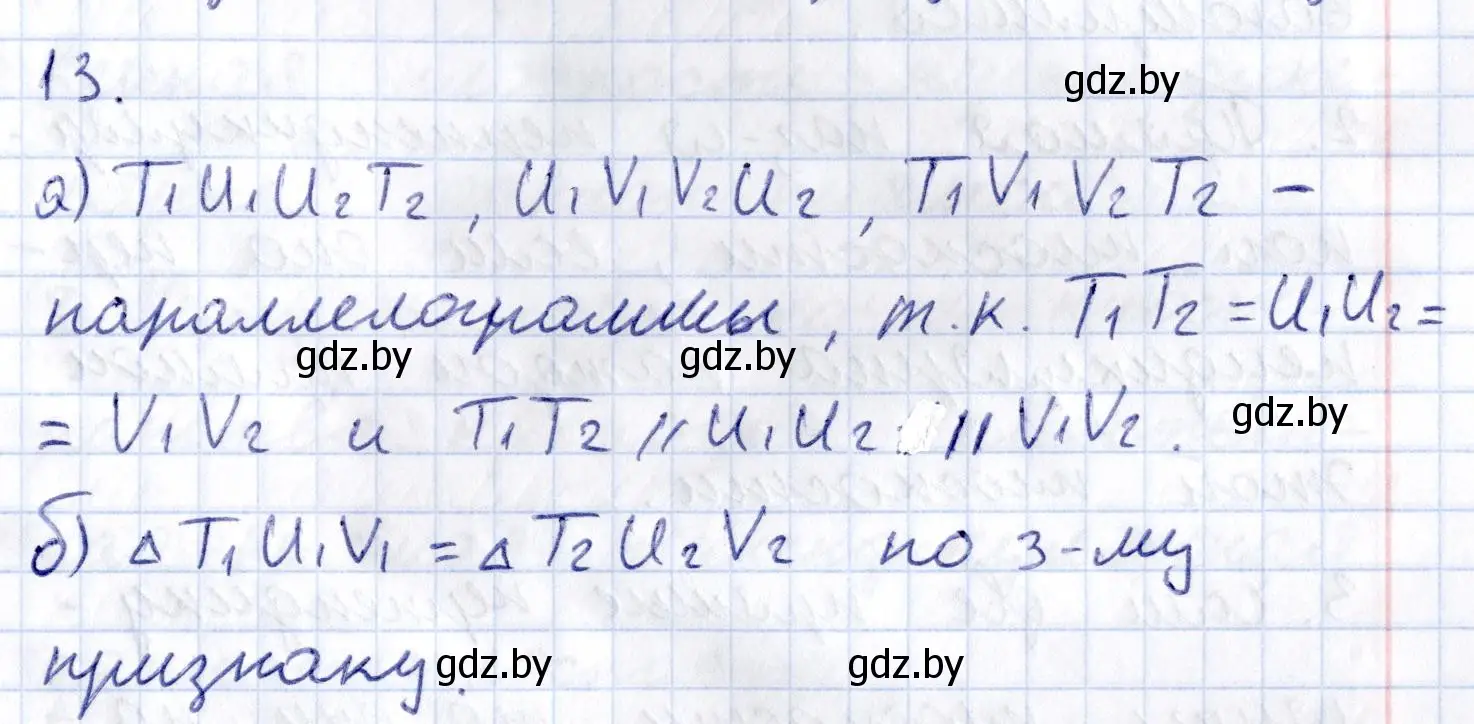 13.
gdz.by
а) T₁U₁U₂T₂, U₁V₁V₂U₂, T₁V₁V₂T₂ –
параллелограммы, т.к. T₁T₂ = U₁U₂ =
gdz.by gdz.by
= V₁V₂ и T₁T₂ // U₁U₂ // V₁V₂.
gdz.by
б) Δ T₁U₁V₁ = Δ T₂U₂V₂ по 3-му
признаку.
gdz.by gdz.by